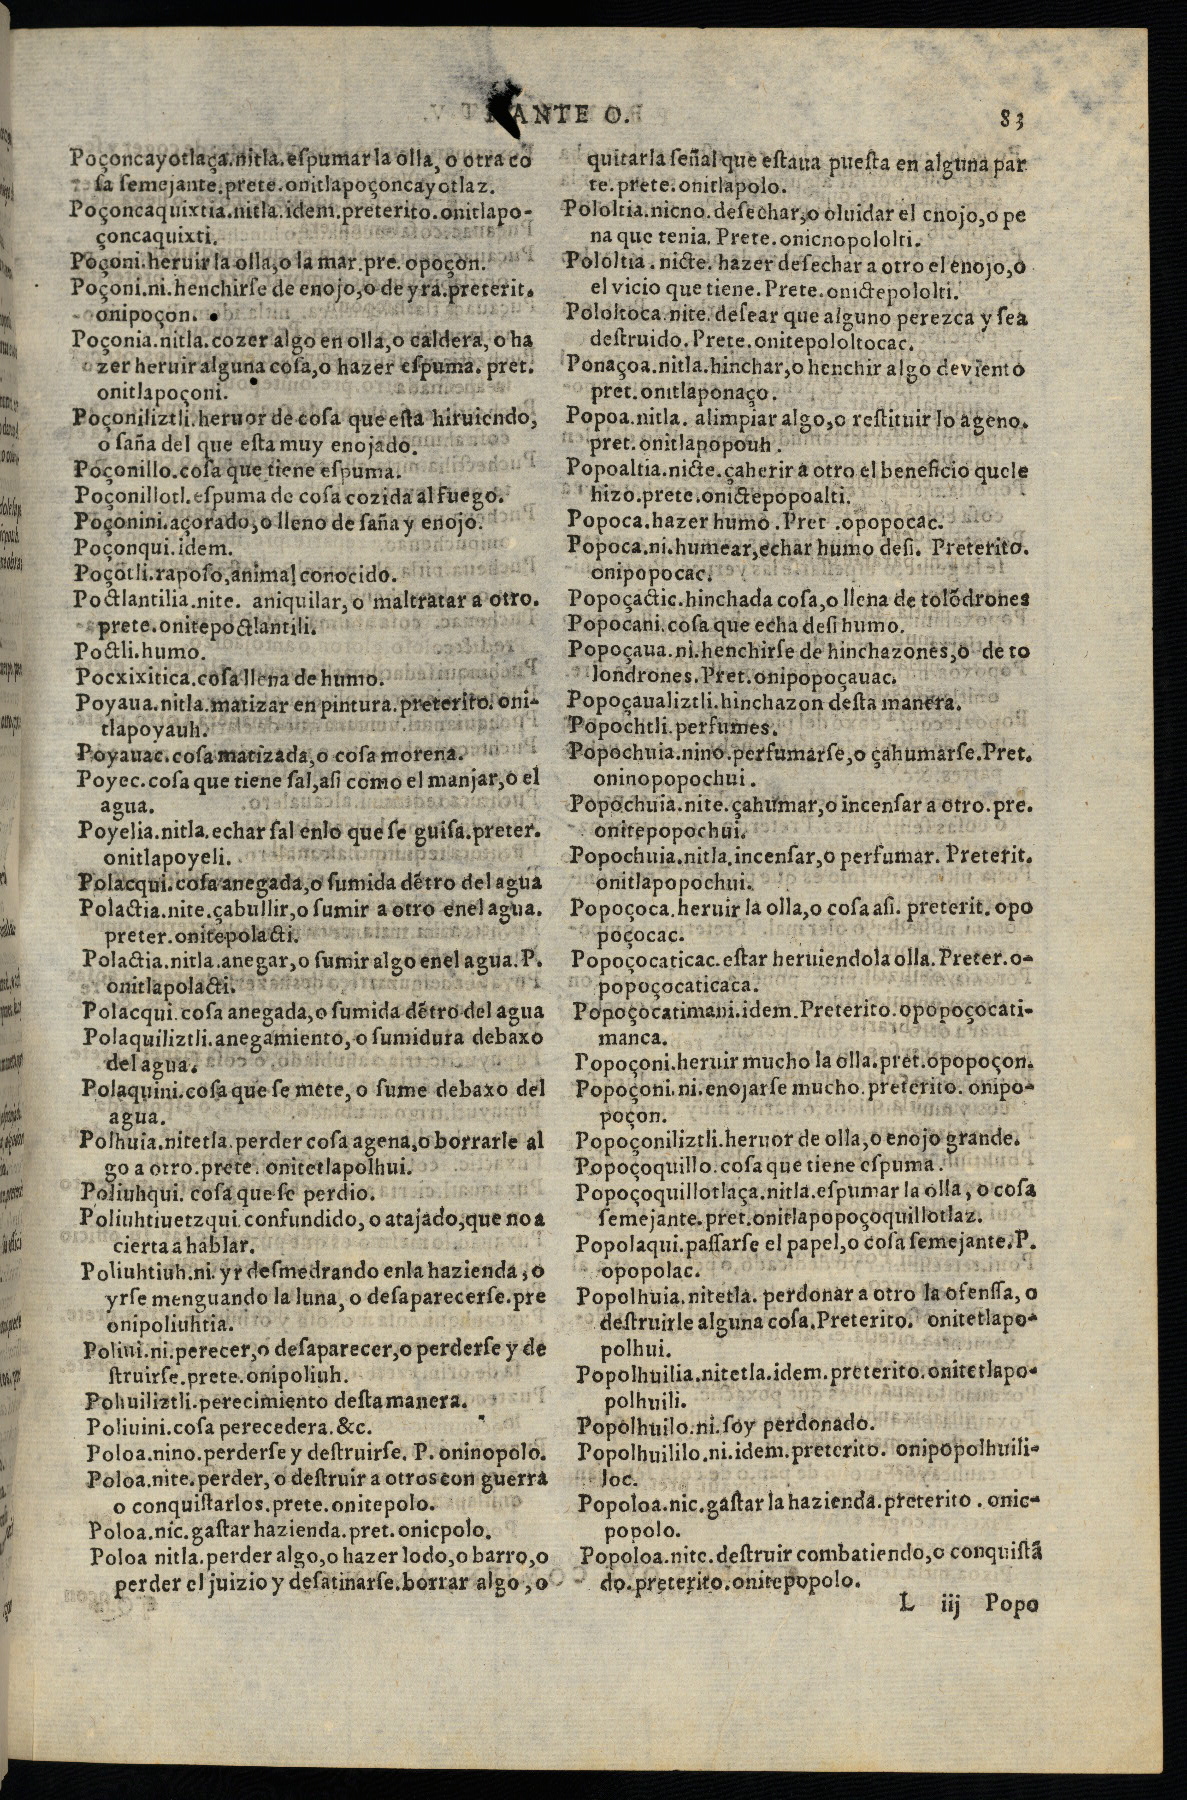 ANTE O.
83
Poçoncayotlaça.nitla.eſpumar la olla, o otra co
ſa ſemejante.prete.onitlapoçoncayotlaz.
Poçoncaquixtia.nitla.idem.preterito.onitlapo-
çoncaquixti.
Poçoni.heruir la olla,o la mar.pre.opoçon.
Poçoni.ni.henchirſe de enojo,o de yra.preterit.
onipoçon.
Poçonia.nitla.cozer algo en olla,o caldera,o ha
zer heruir alguna coſa,o hazer eſpuma. pret.
onitlapoçoni.
Poçoniliztli.heruor de coſa que eſta hiruiendo,
o ſaña del que eſta muy enojado.
Poçonillo.coſa que tiene eſpuma.
Poçonillotl.eſpuma de coſa cozida al fuego.
Poçonini.açorado,o lleno de ſaña y enojo.
Poçonqui.idem.
Poçotli.rapoſo,animal conocido.
Poctlantilia.nite. aniquilar,o maltratar a otro.
prete.onitepoctlantili.
Poctli.humo.
Pocxixitica.coſa llena de humo.
Poyaua.nitla.matizar en pintura.preterito.oni-
tlapoyauh.
Poyauac.coſa matizada,o coſa morena.
Poyec.coſa que tiene ſal,aſi como el manjar,o el
agua.
Poyelia.nitla.echar ſal enlo que ſe guiſa.preter.
onitlapoyeli.
Polacqui.coſa anegada,o ſumida dẽtro del agua
Polactia.nite.çabullir,o ſumir a otro enel agua.
preter.onitepolacti.
Polactia.nitla.anegar,o ſumir algo enel agua.P.
onitlapolacti.
Polacqui.coſa anegada,o ſumida dẽtro del agua
Polaquiliztli.anegamiento,o ſumidura debaxo
del agua.
Polaquini.coſa que ſe mete, o ſume debaxo del
agua.
Polhuia.nitetla.perder coſa agena,o borrarle al
go a otro.prete. onitetlapolhui.
Poliuhqui. coſa que ſe perdio.
Poliuhtiuetzqui.confundido, o atajado,que no a
cierta a hablar.
Poliuhtiuh.ni. yr deſmedrando enla hazienda,o
yrſe menguando la luna, o deſaparecerſe.pre
onipoliuhtia.
Poliui.ni.perecer,o deſaparecer,o perderſe y de
ſtruirſe.prete.onipoliuh.
Pohuiliztli.perecimiento deſta manera.
Poliuini.coſa perecedera.&c.
Poloa.nino.perderſe y deſtruirſe. P. oninopolo.
Poloa.nite.perder, o deſtruir a otros con guerra
o conquiſtarlos.prete.onitepolo.
Poloa.nic.gaſtar hazienda.pret.onicpolo.
Poloa nitla.perder algo,o hazer lodo,o barro,o
perder el juizio y deſatinarſe.borrar algo,o
quitar la ſeñal que eſtaua pueſta en alguna par
te.prete.onitlapolo.
Pololtia.nicno.deſechar,o oluidar el enojo,o pe
na que tenia. Prete.onicnopololti.
Pololtia.nicte. hazer deſechar a otro el enojo,o
el vicio que tiene.Prete.onictepololti.
Pololtoca.nite.deſear que alguno perezca y ſea
deſtruido.Prete.onitepololtocac.
Ponaçoa.nitla.hinchar,o henchir algo de viento
pret.onitlaponaço.
Popoa.nitla. alimpiar algo,o reſtituir lo ageno.
pret.onitlapopouh.
Popoaltia.nicte.çaherir a otro el beneficio quele
hizo.prete.onictepopoalti.
Popoca.hazer humo.Pret.opopocac.
Popoca.ni.humear,echar humo deſi. Preterito.
onipopocac.
Popoçactic.hinchada coſa,o llena de tolõdrones
Popocani.coſa que echa deſi humo.
Popoçaua.ni.henchirſe de hinchazones,o de to
londrones.Pret.onipopoçauac.
Popoçaualiztli.hinchazon deſta manera.
Popochtli.perfumes.
Popochuia.nino.perfumarſe,o çahumarſe.Pret.
oninopopochui.
Popochuia.nite.çahumar,o incenſar a otro.pre.
onitepopochui.
Popochuia.nitla.incenſar,o perfumar. Preterit.
onitlapopochui.
Popoçoca.heruir la olla,o coſa aſi. preterit. opo
poçocac.
Popoçocaticac.eſtar heruiendo la olla.Preter.o-
popoçocaticaca.
Popoçocatimani.idem.Preterito.opopoçocati-
manca.
Popoçoni.heruir mucho la olla.pret.opopoçon.
Popoçoni.ni.enojarſe mucho.preterito. onipo-
poçon.
Popoçoniliztli.heruor de olla,o enojo grande.
Popoçoquillo.coſa que tiene eſpuma.
Popoçoquillotlaça.nitla.eſpumar la olla, o coſa
ſemejante.pret.onitlapopoçoquillotlaz.
Popolaqui.paſſarſe el papel,o coſa ſemejante.P.
opopolac.
Popolhuia.nitetla. perdonar a otro la ofenſſa, o
deſtruirle alguna coſa.Preterito. onitetlapo-
polhui.
Popolhuilia.nitetla.idem.preterito.onitetlapo-
polhuili.
Popolhuilo.ni.ſoy perdonado.
Popolhuililo.ni.idem.preterito. onipopolhuili-
loc.
Popoloa.nic.gaſtar la hazienda.preterito. onic-
popolo.
Popoloa.nite.deſtruir combatiendo,o conquiſtã
do.preterito.onitepopolo.
L iij Popo